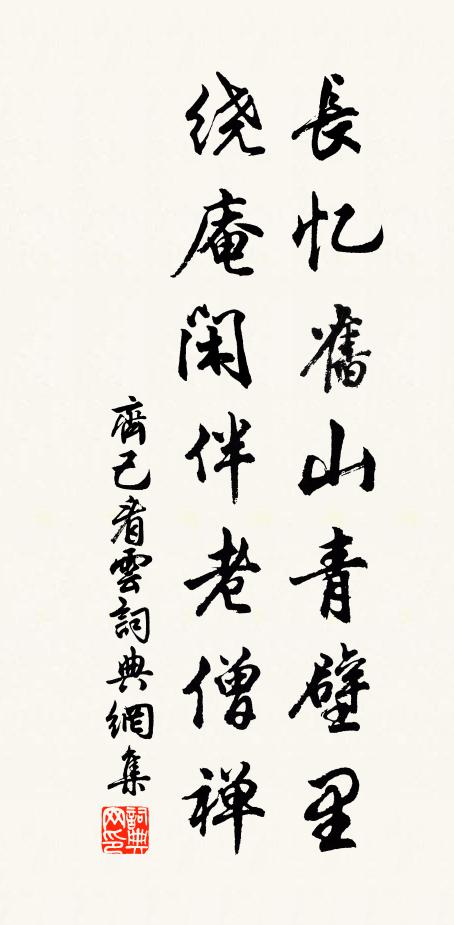 長忆舊山青壁里
绕庵闲伴老僧禅
齊己看雲詞典網集
詞典网印